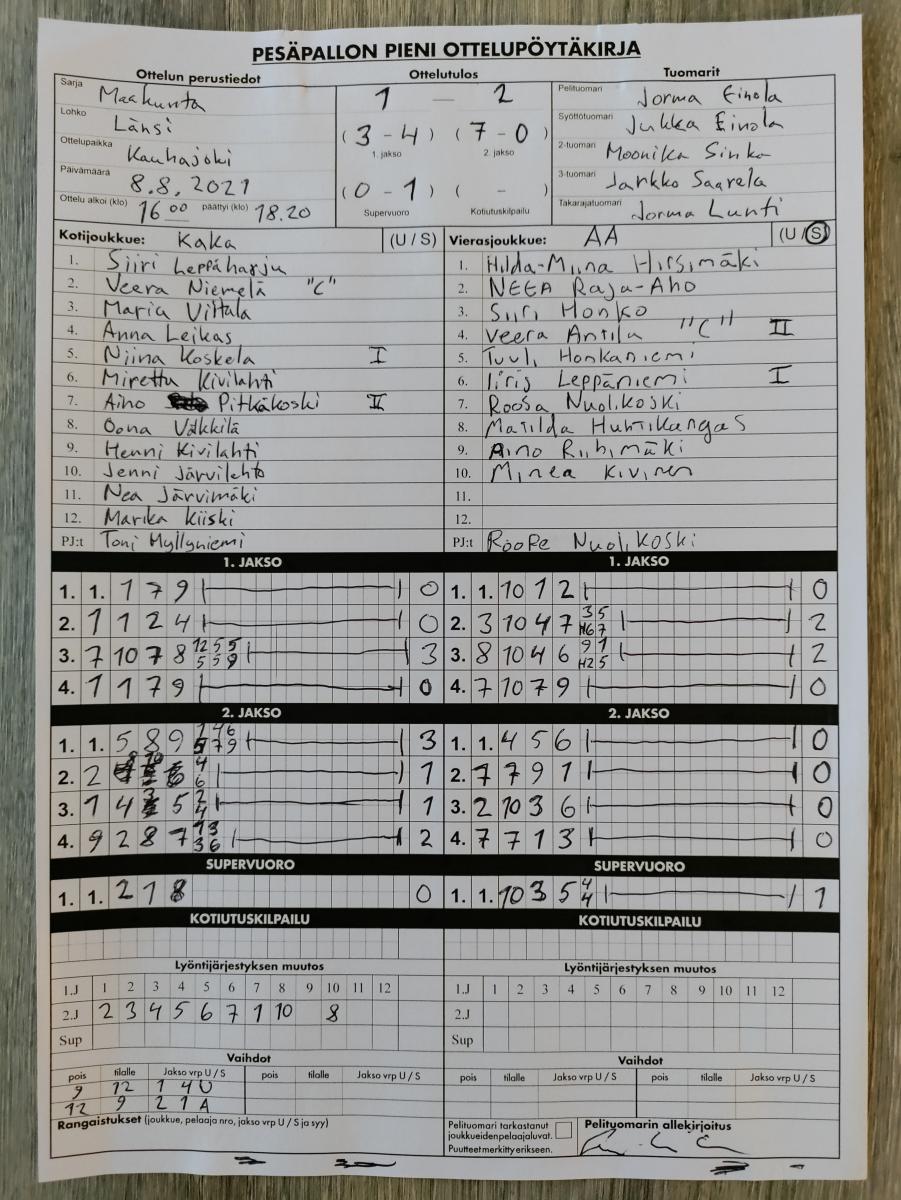 PESÄPALLON PIENI OTTELUPÖYTÄKIRJA
Ottelun perustiedot Ottelutulos Tuomarit
Sarja Maakunta
Lohko Länsi
Ottelupaikka Kauhajoki
Päivämäärä 8.8.2021
Ottelu alkoi (klo) 16 00 päättyi (klo) 18.20
1 — 2
(3 - 4) (7 - 0)
1. jakso 2. jakso
(0 - 1) ( - )
Supervuoro Kotiutuskilpailu
Pelituomari Jorma Einola
Syöttötuomari Jukka Einola
2-tuomari Moonika Sinko
3-tuomari Jarkko Saarela
Takarajatuomari Jorma Lunti
Kotijoukkue: KaKa (U / S)
1. Siiri Leppäharju
2. Veera Niemelä "C"
3. Maria Viitala
4. Anna Leikas
5. Niina Koskela I
6. Miretta Kivilahti
7. Aino Pitkäkoski II
8. Oona Välkkilä
9. Henni Kivilahti
10. Jenni Järvilehto
11. Nea Järvimäki
12. Marika Kiiski
PJ:t Toni Myllyniemi
Vierasjoukkue: AA (U / S)
1. Hilda-Miina Hirsimäki
2. NEEA Raja-Aho
3. Siiri Honko
4. Veera Antila "C" II
5. Tuuli Honkaniemi
6. Iiris Leppäniemi I
7. Roosa Nuolikoski
8. Matilda Huhtikangas
9. Aino Riihimäki
10. Minea Kivinen
11.
12.
PJ:t Roope Nuolikoski
1. JAKSO 1. JAKSO
1. 1. 1 7 9 0 1. 1. 10 1 2 0
2. 1 1 2 4 0 2. 3 10 4 7 3 5 H6 7 2
3. 7 10 7 8 12 5 5 5 5 9 3 3. 8 10 4 6 9 1 H2 5 2
4. 1 1 7 9 0 4. 7 10 7 9 0
2. JAKSO 2. JAKSO
1. 1. 5 8 9 4 6 5 7 9 3 1. 1. 4 5 6 0
2. 2 4 6 1 2. 7 7 9 1 0
3. 1 4 3 5 2 4 1 3. 2 10 3 6 0
4. 9 2 8 7 1 3 3 6 2 4. 7 7 1 3 0
SUPERVUORO SUPERVUORO
1. 1. 2 1 8 0 1. 1. 10 3 5 4 4 1
KOTIUTUSKILPAILU KOTIUTUSKILPAILU
Lyöntijärjestyksen muutos Lyöntijärjestyksen muutos
1.J 1 2 3 4 5 6 7 8 9 10 11 12 1.J 1 2 3 4 5 6 7 8 9 10 11 12
2.J 2 3 4 5 6 7 1 10 8 2.J
Sup Sup
Vaihdot Vaihdot
pois tilalle Jakso vrp U / S pois tilalle Jakso vrp U / S pois tilalle Jakso vrp U / S pois tilalle Jakso vrp U / S
9 12 1 4 U
12 9 2 1 A
Rangaistukset (joukkue, pelaaja nro, jakso vrp U / S ja syy)
Pelituomari tarkastanut
joukkueidenpelaajaluvat.
Puutteet merkitty erikseen.
Pelituomarin allekirjoitus